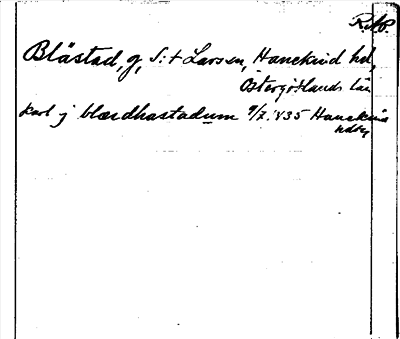 R.Ap.
Blästad, g, S:t Larsen, Hanekind hd,
Östergötlands län
karl j blærdhastadum 9/7 1435 Hanekinds
hdtg